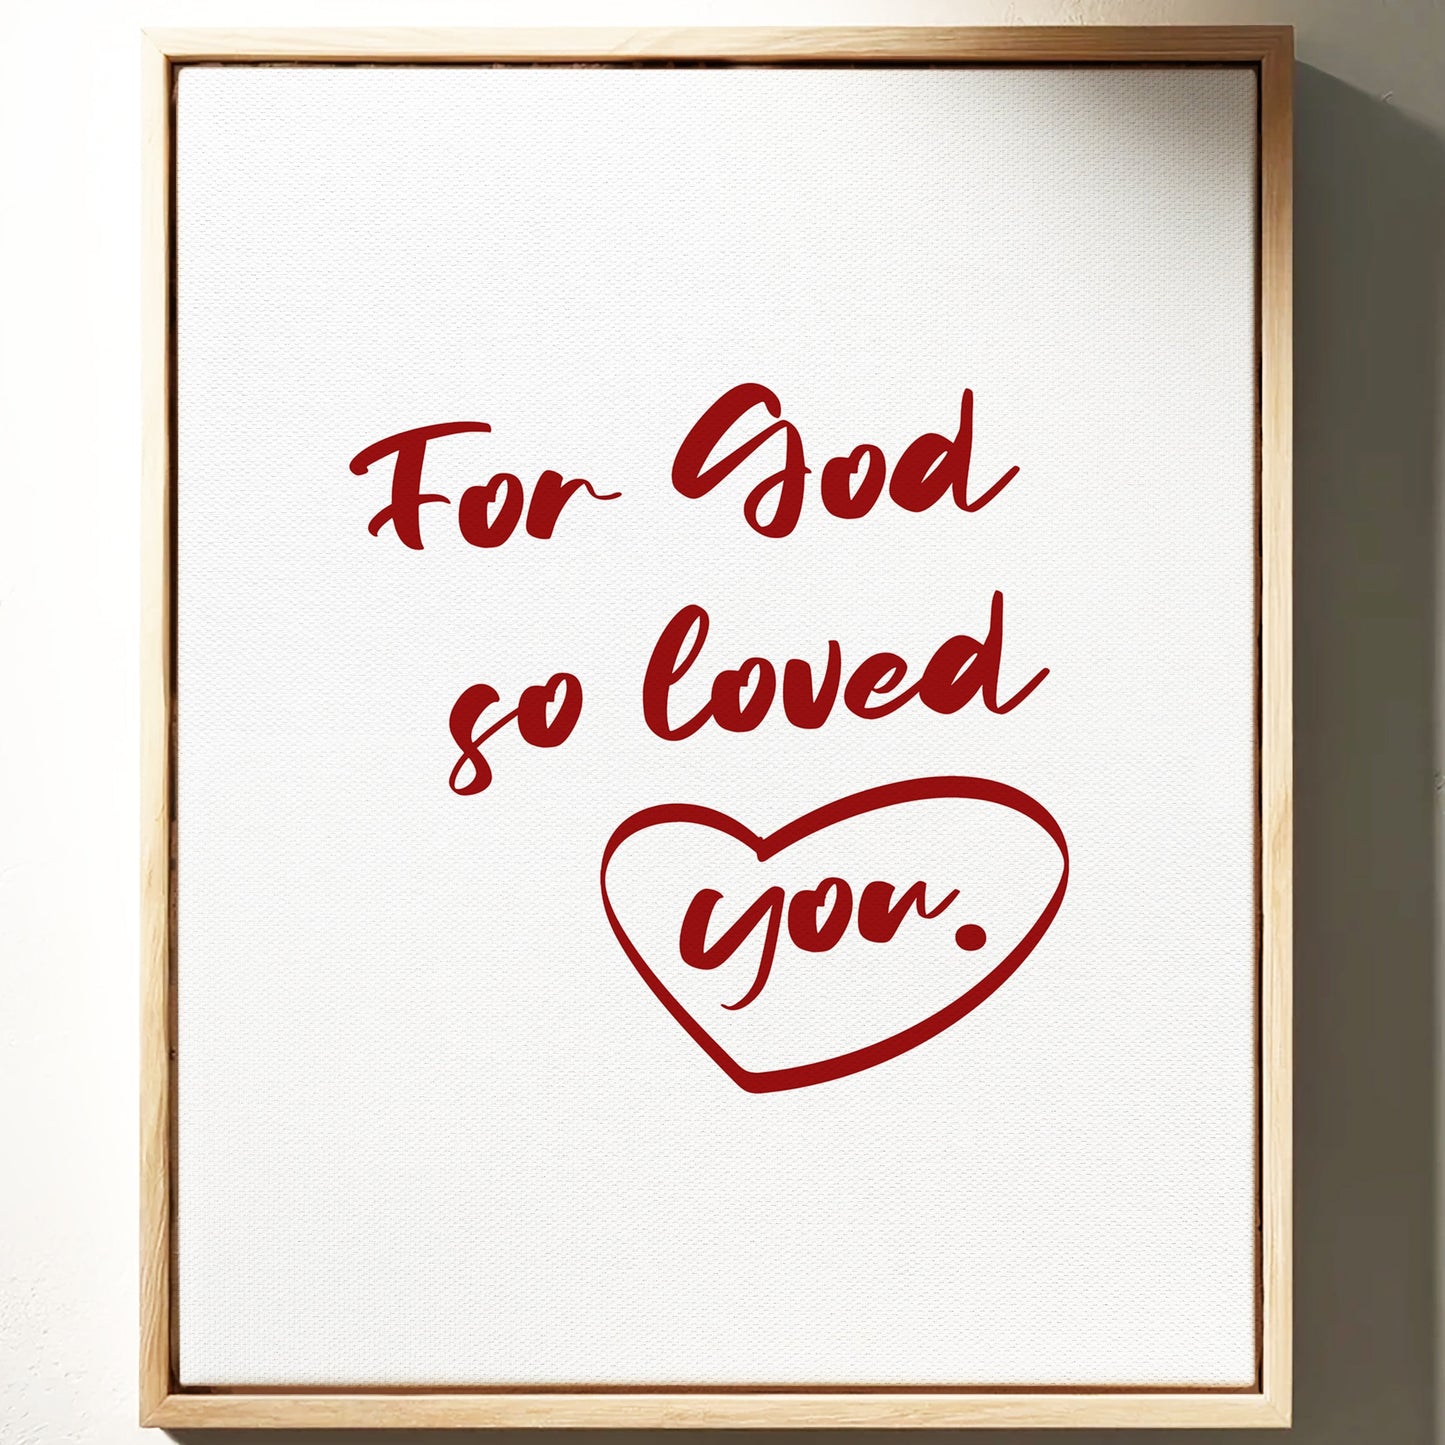 For God
so loved
you.